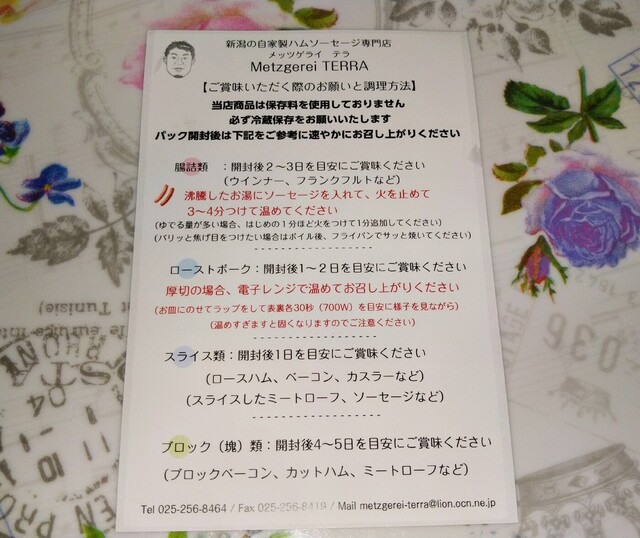 新潟の自家製ハムソーセージ専門店
メッツゲライ テラ
Metzgerei TERRA
【ご賞味いただく際のお願いと調理方法】
当店商品は保存料を使用しておりません
必ず冷蔵保存をお願いいたします
パック開封後は下記をご参考に速やかにお召し上がりください
腸詰類 ：開封後２～３日を目安にご賞味ください
(ウインナー、フランクフルトなど)
沸騰したお湯にソーセージを入れて、火を止めて
3～4分つけて温めてください
(ゆでる量が多い場合、はじめの１分ほど火をつけて1分追加してください)
(パリッと焦げ目をつけたい場合はボイル後、フライパンでサッと焼いてください)
ローストポーク：開封後1～２日を目安にご賞味ください
厚切の場合、電子レンジで温めてお召し上がりください
(お皿にのせてラップをして表裏各30秒（700W）を目安に様子を見ながら)
(温めすぎますと固くなりますのでご注意ください)
スライス類：開封後1日を目安にご賞味ください
(ロースハム、ベーコン、カスラーなど)
(スライスしたミートローフ、ソーセージなど)
ブロック（塊）類：開封後4～5日を目安にご賞味ください
(ブロックベーコン、カットハム、ミートローフなど)
Tel 025-256-8464 / Fax 025-256-8419 / Mail metzgerei-terra@lion.ocn.ne.jp